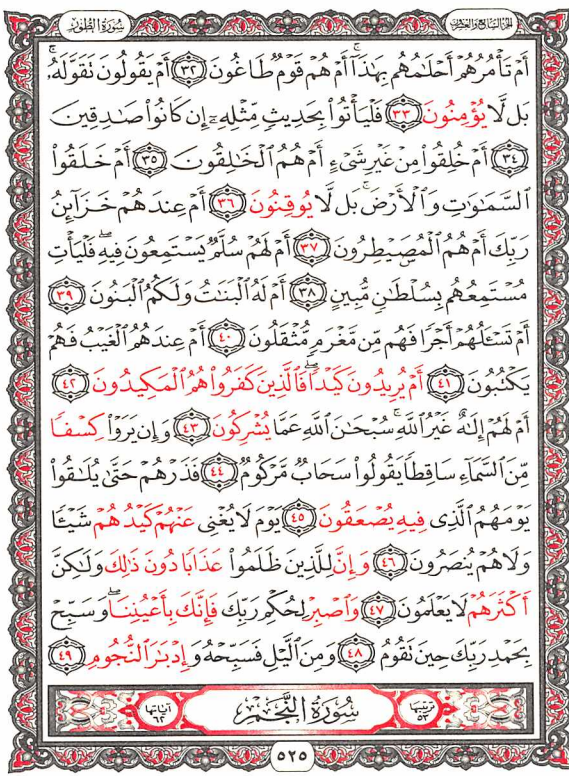 سُورَةُ الطُّورِ
الجزء السابع والعشرون
أَمْ تَأْمُرُهُمْ أَحْلَٰمُهُم بِهَٰذَآ ۚ أَمْ هُمْ قَوْمٌ طَاغُونَ ٣٢ أَمْ يَقُولُونَ تَقَوَّلَهُۥ ۚ
بَل لَّا يُؤْمِنُونَ ٣٣ فَلْيَأْتُوا۟ بِحَدِيثٍ مِّثْلِهِۦٓ إِن كَانُوا۟ صَٰدِقِينَ
٣٤ أَمْ خُلِقُوا۟ مِنْ غَيْرِ شَىْءٍ أَمْ هُمُ ٱلْخَٰلِقُونَ ٣٥ أَمْ خَلَقُوا۟
ٱلسَّمَٰوَٰتِ وَٱلْأَرْضَ ۚ بَل لَّا يُوقِنُونَ ٣٦ أَمْ عِندَهُمْ خَزَآئِنُ
رَبِّكَ أَمْ هُمُ ٱلْمُصَۣيْطِرُونَ ٣٧ أَمْ لَهُمْ سُلَّمٌ يَسْتَمِعُونَ فِيهِ ۖ فَلْيَأْتِ
مُسْتَمِعُهُم بِسُلْطَٰنٍ مُّبِينٍ ٣٨ أَمْ لَهُ ٱلْبَنَٰتُ وَلَكُمُ ٱلْبَنُونَ ٣٩
أَمْ تَسْـَٔلُهُمْ أَجْرًا فَهُم مِّن مَّغْرَمٍ مُّثْقَلُونَ ٤٠ أَمْ عِندَهُمُ ٱلْغَيْبُ فَهُمْ
يَكْتُبُونَ ٤١ أَمْ يُرِيدُونَ كَيْدًا ۖ فَٱلَّذِينَ كَفَرُوا۟ هُمُ ٱلْمَكِيدُونَ ٤٢
أَمْ لَهُمْ إِلَٰهٌ غَيْرُ ٱللَّهِ ۚ سُبْحَٰنَ ٱللَّهِ عَمَّا يُشْرِكُونَ ٤٣ وَإِن يَرَوْا۟ كِسْفًا
مِّنَ ٱلسَّمَآءِ سَاقِطًا يَقُولُوا۟ سَحَابٌ مَّرْكُومٌ ٤٤ فَذَرْهُمْ حَتَّىٰ يُلَٰقُوا۟
يَوْمَهُمُ ٱلَّذِى فِيهِ يُصْعَقُونَ ٤٥ يَوْمَ لَا يُغْنِى عَنْهُمْ كَيْدُهُمْ شَيْـًٔا
وَلَا هُمْ يُنصَرُونَ ٤٦ وَإِنَّ لِلَّذِينَ ظَلَمُوا۟ عَذَابًا دُونَ ذَٰلِكَ وَلَٰكِنَّ
أَكْثَرَهُمْ لَا يَعْلَمُونَ ٤٧ وَٱصْبِرْ لِحُكْمِ رَبِّكَ فَإِنَّكَ بِأَعْيُنِنَا ۖ وَسَبِّحْ
بِحَمْدِ رَبِّكَ حِينَ تَقُومُ ٤٨ وَمِنَ ٱلَّيْلِ فَسَبِّحْهُ وَإِدْبَٰرَ ٱلنُّجُومِ ٤٩
ترتيبها ٥٣ سُورَةُ النَّجْمِ آياتها ٦٢
٥٢٥